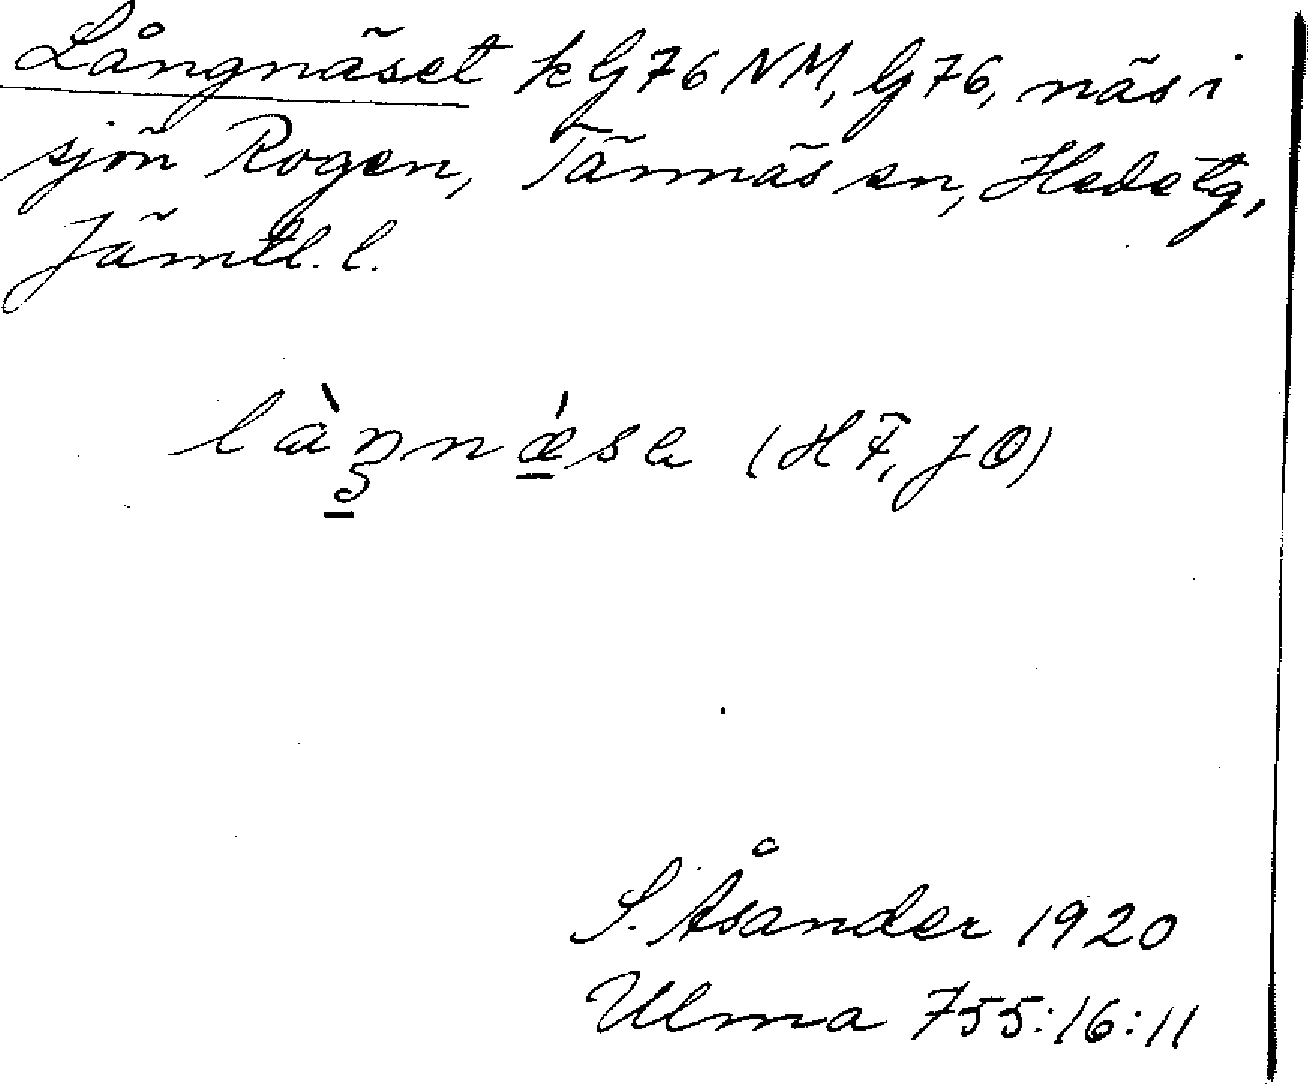 Långnäset k G76 NM, G76, näs i
sjön Rogen, Tännäs sn, Hede tg,
Jämtl. l.
làŋnǽsa (HF, JO)
S. Åsander 1920
Ulma 755:16:11